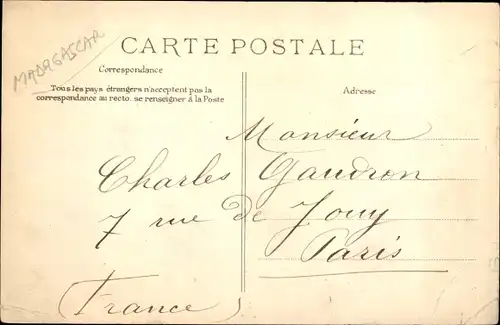 MADAGASCAR
CARTE POSTALE
Correspondance
Tous les pays étrangers n'acceptent pas la
correspondance au recto. se renseigner à la Poste
Adresse
Monsieur
Charles Gaudron
7 rue de Jouy
Paris
(France)